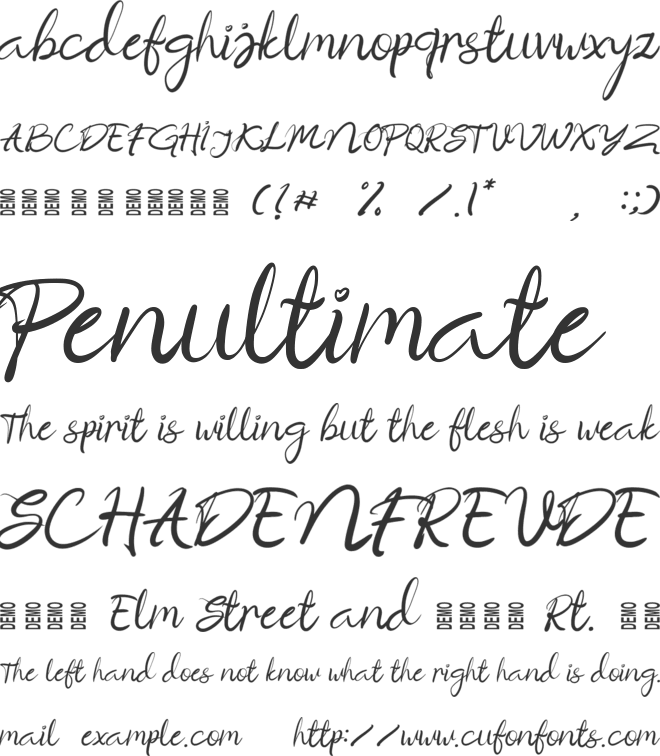 abcdefghijklmnopqrstuvwxyz
ABCDEFGHIJKLMNOPQRSTUVWXYZ
DEMO DEMO DEMO DEMO DEMO DEMO DEMO DEMO DEMO (!# % /.!* , :;)
Penultimate
The spirit is willing but the flesh is weak
SCHADENFREUDE
DEMO DEMO DEMO DEMO Elm Street and DEMO DEMO DEMO DEMO Rt. DEMO DEMO
The left hand does not know what the right hand is doing.
mail example.com http://www.cufonfonts.com